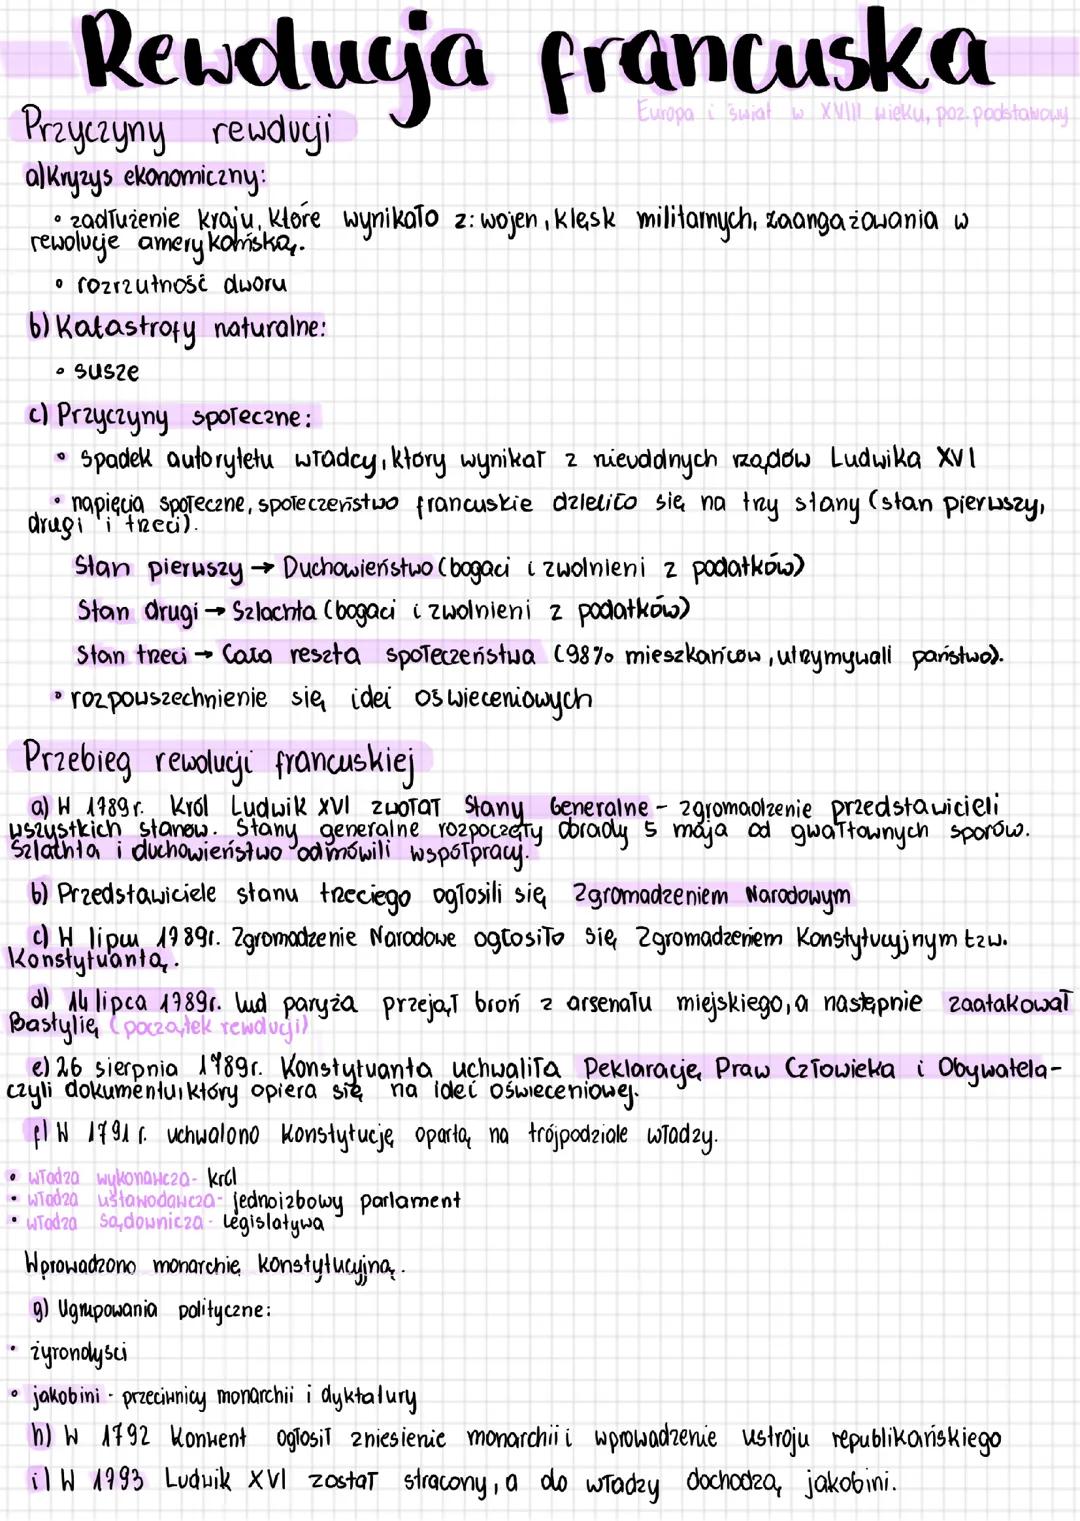 Rewolucja francuska
Europa i świat w XVIII wieku, poz. podstawowy
Przyczyny rewolucji
a) Kryzys ekonomiczny:
• zadłużenie kraju, które wynikało z: wojen, klęsk militarnych, zaangażowania w
rewolucje amerykańską.
• rozrzutność dworu
b) Katastrofy naturalne:
• susze
c) Przyczyny społeczne:
• spadek autorytetu władcy, który wynikał z nieudolnych rządów Ludwika XVI
• napięcia społeczne, społeczeństwo francuskie dzieliło się na trzy stany (stan pierwszy,
drugi i trzeci).
Stan pierwszy → Duchowieństwo (bogaci i zwolnieni z podatków)
Stan drugi → Szlachta (bogaci i zwolnieni z podatków)
Stan trzeci → Cała reszta społeczeństwa (98% mieszkańców, utrzymywali państwo).
• rozpowszechnienie się idei oświeceniowych
Przebieg rewolucji francuskiej
a) W 1789r. Król Ludwik XVI zwołał Stany Generalne - zgromadzenie przedstawicieli
wszystkich stanów. Stany generalne rozpoczęły obrady 5 maja od gwałtownych sporów.
Szlachta i duchowieństwo odmówili współpracy.
b) Przedstawiciele stanu trzeciego ogłosili się Zgromadzeniem Narodowym
c) W lipcu 1989r. Zgromadzenie Narodowe ogłosiło się Zgromadzeniem Konstytucyjnym tzw.
Konstytuantą.
d) 14 lipca 1789r. lud paryża przejął broń z arsenału miejskiego, a następnie zaatakował
Bastylię (początek rewolucji)
e) 26 sierpnia 1789r. Konstytuanta uchwaliła Deklarację Praw Człowieka i Obywatela-
czyli dokumentu, który opiera się na idei oświeceniowej.
f) W 1791 r. uchwalono Konstytucję opartą na trójpodziale władzy.
• władza wykonawcza- król
• władza ustawodawcza- jednoizbowy parlament
• władza sądownicza - Legislatywa
Wprowadzono monarchię konstytucyjną.
g) Ugrupowania polityczne:
• żyrondyści
• jakobini - przeciwnicy monarchii i dyktatury
h) W 1792 Konwent ogłosił zniesienie monarchii i wprowadzenie ustroju republikańskiego
i) W 1793 Ludwik XVI został stracony, a do władzy dochodzą jakobini.